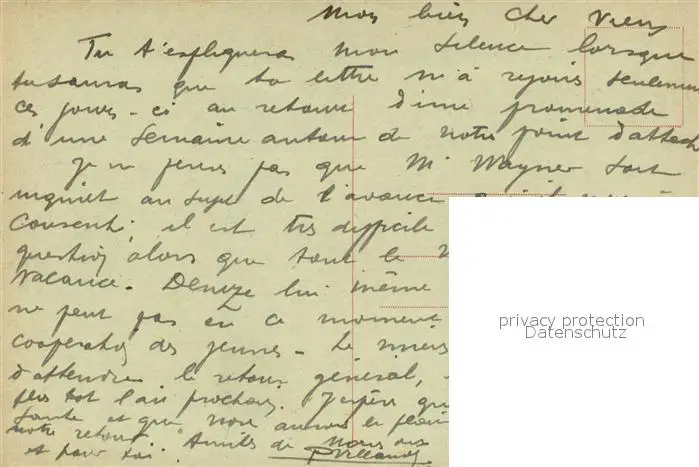 Mon bien cher Vieux
Tu t'expliqueras mon silence lorsque
tu sauras que ta lettre m'a rejoint seulement
ces jours-ci au retour d'une promenade
d'une semaine autour de notre point d'attache
Je ne pense pas que Mr Wagner soit
inquiet au sujet de l'avance
consenti, il est très difficile
question alors que tout le
vacance. Deneze lui même
ne peut pas en ce moment
coopérative des jeunes - Le mieux
d'attendre le retour général,
plus tot l'an prochain. J'espère que
santé et que nous aurons le plaisir
notre retour. Amitiés de nous deux
et pour toi.
privacy protection
Datenschutz